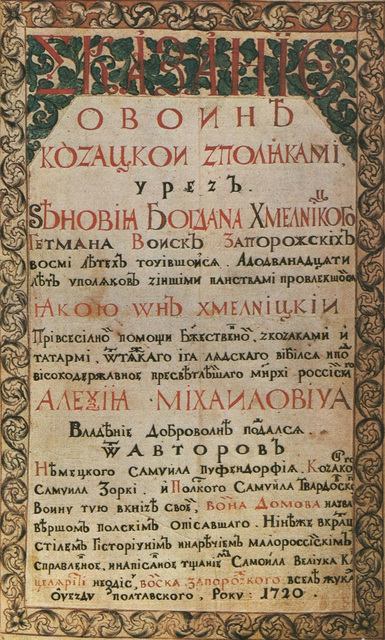 СКАЗАНІЕ
О ВОИНѢ
КОЗАЦКОИ ZПОЛѦКАМІ,
УРЕZЪ
ЅѢНОВІѦ БОГДАНА ХМЕЛНІЦКОГО
ГЕТМАНА ВОИСКЪ ЗАПОРОЖСКІХЪ
ВОСМІ ЛѢТЕХЪ ТОЧИВШОЙСѦ. АДОДВАНАДЦАТИ
ЛѢТЪ УПОЛѦКОВЪ ZІННШІМИ ПАНСТВАМІ ПРОВЛЕКШОЙСѦ
ꙖКОЮ ѠНЪ ХМЕЛНІЦКІИ
ПРІВСЕСІЛНОЙ ПОМОЩИ БЖЕСТВЕНОЙ, ZКОZАКАМИ И
ТАТАРМІ, ѾТѦЖКАГО ІГА ЛѦДСКАГО ВІБІЛСѦ ИПО
ВІСОКОДЕРЖАВНОЕ ПРЕСВѢТЛѢШАГО МНРХІ РОССІЙСКІ
АЛЕѮІѦ МІХАИЛОВІЧА
ВЛАДѢНІЕ ДОБРОВОЛНѢ ПОДАЛСѦ
Ѿ АВТОРОВЪ
НѢМЕЦКОГО САМУИЛА ПУФЕНДОРФІѦ, КОZАКО
САМУИЛА ЗОРКІ. И ПОЛСКОГО САМУИЛА ТВАРДОСК
ВОИНУ ТУЮ ВКНІZѢ СВОЕЙ, ВОЙНА ДОМОВА НАZВА
ВѢРШОМЪ ПОЛСКІМЪ ОПІСАВШАГО. НІНѢЖЕ ВКРАЦ
СТІЛЕМЪ ГІСТОРІЧНІМЪ ИНАРѢЧІЕМЪ МАЛОРОССІЙСКІМЪ
СПРАВЛЕНОЕ, ИНАПІСАНОЕ ТЩАНІЕМЪ САМОИЛА ВЕЛІЧКА К
ЦЕЛѦРІЙ НЕГДІС, ВОСКА ЗАПОРОZКОГО ВСЕЛѢ ЖУКА
ОУЕZДУ ПОЛТАВСКОГО, РОКУ: 1720.